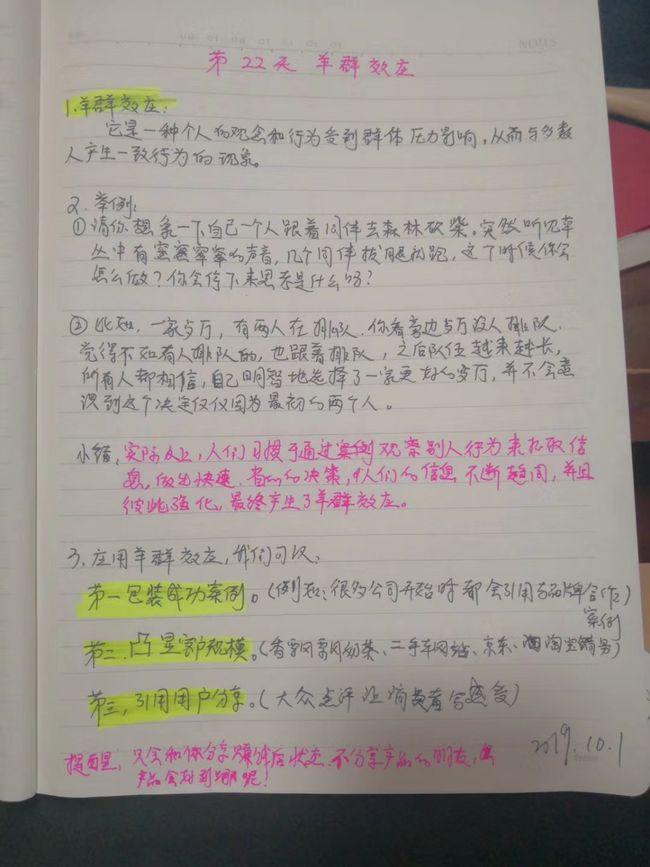 第22天 羊群效应
1.羊群效应:
它是一种个人的观念和行为受到群体压力影响,从而与多数
人产生一致行为的现象。
2.举例:
①请你想象一下自己一个人跟着同伴去森林砍柴。突然听见草
丛中有窸窸窣窣的声音,几个同伴拔腿就跑,这个时候你会
怎么做?你会停下来思考是什么吗?
②比如,一家餐厅,有两人在排队.你看旁边餐厅没人排队.
觉得不如有人排队的,也跟着排队,之后队伍越来越长,
所有人都相信,自己明智地选择了一家更好的餐厅,并不会意
识到这个决定仅仅因为最初的两个人。
小结,实际上,人们习惯于通过观察别人行为来获取信
息,做出快速.省力的决策,人们的信息不断趋同,并且
彼此强化,最终产生了羊群效应。
3.应用羊群效应,我们可以:
第一包装成功案例。(例如:很多公司开始时都会引用与品牌合作)
案例
第二.凸显客户规模。(香飘飘奶茶、二手车网站、京东、淘宝销售)
第三,引用用户分享。(大众点评让消费者分享感受)
提醒,只会和你分享赚钱后状态.不分享产品的朋友,
产品会好到哪呢!
2019.10.1